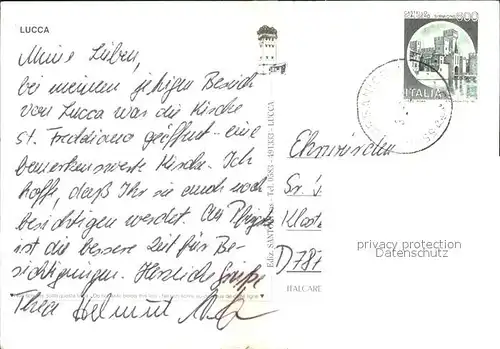 LUCCA
Meine Lieben,
bei meinem jetzigen Besuch
von Lucca war die Kirche
St. Frediano geöffnet - eine
bemerkenswerte Kirche. Ich
hoffe, daß Ihr sie auch noch
besichtigen werdet. An Pfingsten
ist die bessere Zeit für Be-
sichtigungen. Herzliche Grüße
Helmut
600
ITALIA
Ediz. - Tel. 0583 - 491333 - LUCCA
Ehrwürdigen
Sr.
Klost
D 781
privacy protection
Datenschutz
ITALCARE